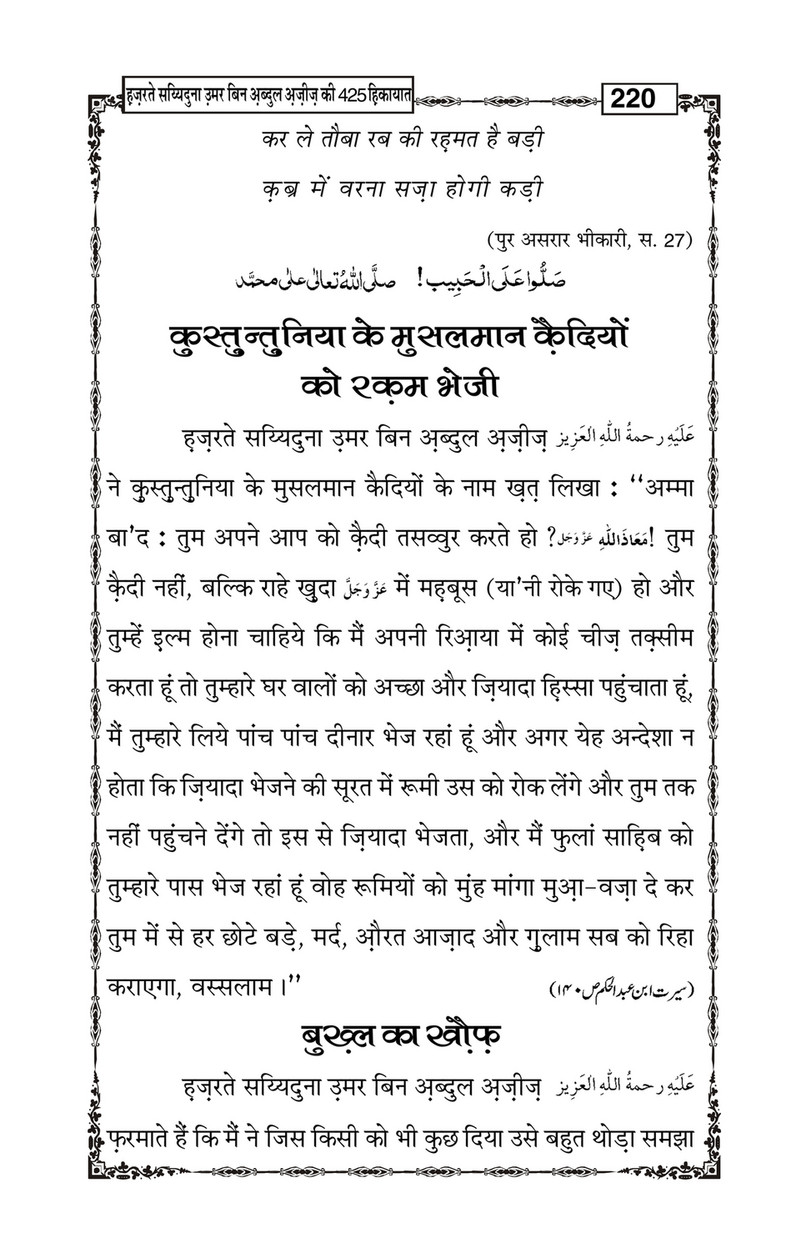 हज़रते सय्यिदुना उ़मर बिन अ़ब्दुल अ़ज़ीज़ की 425 हिकायात
220
कर ले तौबा रब की रह़मत है बड़ी
क़ब्र में वरना सज़ा होगी कड़ी
(पुर असरार भीकारी, स. 27)
صَلُّوا عَلَى الْحَبِيب ! صلَّى اللهُ تعالٰى علٰى محمَّد
क़ुस्तुन्तुनिया के मुसलमान क़ैदियों
को रक़म भेजी
ह़ज़रते सय्यिदुना उ़मर बिन अ़ब्दुल अ़ज़ीज़ عَلَيْهِ رحمةُ اللهِ العَزِيز
ने क़ुस्तुन्तुनिया के मुसलमान कैदियों के नाम ख़त़ लिखा : ‘‘अम्मा
बा'द : तुम अपने आप को क़ैदी तसव्वुर करते हो ? مَعَاذَاللهِ عَزَّوَجَل! तुम
क़ैदी नहीं, बल्कि राहे ख़ुदा عَزَّوَجَلَّ में मह़बूस (या'नी रोके गए) हो और
तुम्हें इ़ल्म होना चाहिये कि मैं अपनी रिआ़या में कोई चीज़ तक़्सीम
करता हूं तो तुम्हारे घर वालों को अच्छा और ज़ियादा हिस्सा पहुंचाता हूं,
मैं तुम्हारे लिये पांच पांच दीनार भेज रहां हूं और अगर येह अन्देशा न
होता कि ज़ियादा भेजने की सूरत में रूमी उस को रोक लेंगे और तुम तक
नहीं पहुंचने देंगे तो इस से ज़ियादा भेजता, और मैं फुलां साहिब को
तुम्हारे पास भेज रहां हूं वोह रूमियों को मुंह मांगा मुआ़-वज़ा दे कर
तुम में से हर छोटे बड़े, मर्द, औ़रत आज़ाद और ग़ुलाम सब को रिहा
कराएगा, वस्सलाम ।’’ (سیرت ابن عبدالحکم ص ۱۴۰)
बुख़्ल का ख़ौफ़
ह़ज़रते सय्यिदुना उ़मर बिन अ़ब्दुल अ़ज़ीज़ عَلَيْهِ رحمةُ اللهِ العَزِيز
फ़रमाते हैं कि मैं ने जिस किसी को भी कुछ दिया उसे बहुत थोड़ा समझा